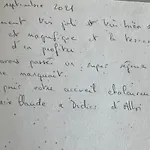 septembre 2021
très joli et très bien s
et magnifique et la terrass
d'en profiter.
avons passé un super séjour
manquait.
pour votre accueil chaleureux
Claude & Didier d'Albi